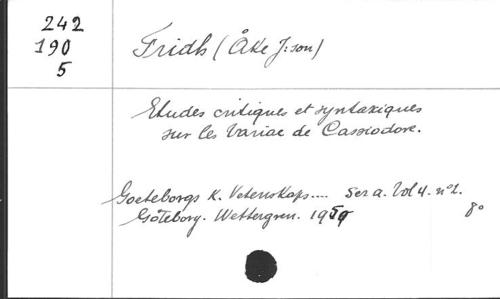 242
190
5
Fridh (Åke J:son)
Etudes critiques et syntaxiques
sur les Variae de Cassiodore.
Goeteborgs K. Vetenskaps.... Ser a. Vol 4. nº 2.
Göteborg. Wettergren. 1950
8º